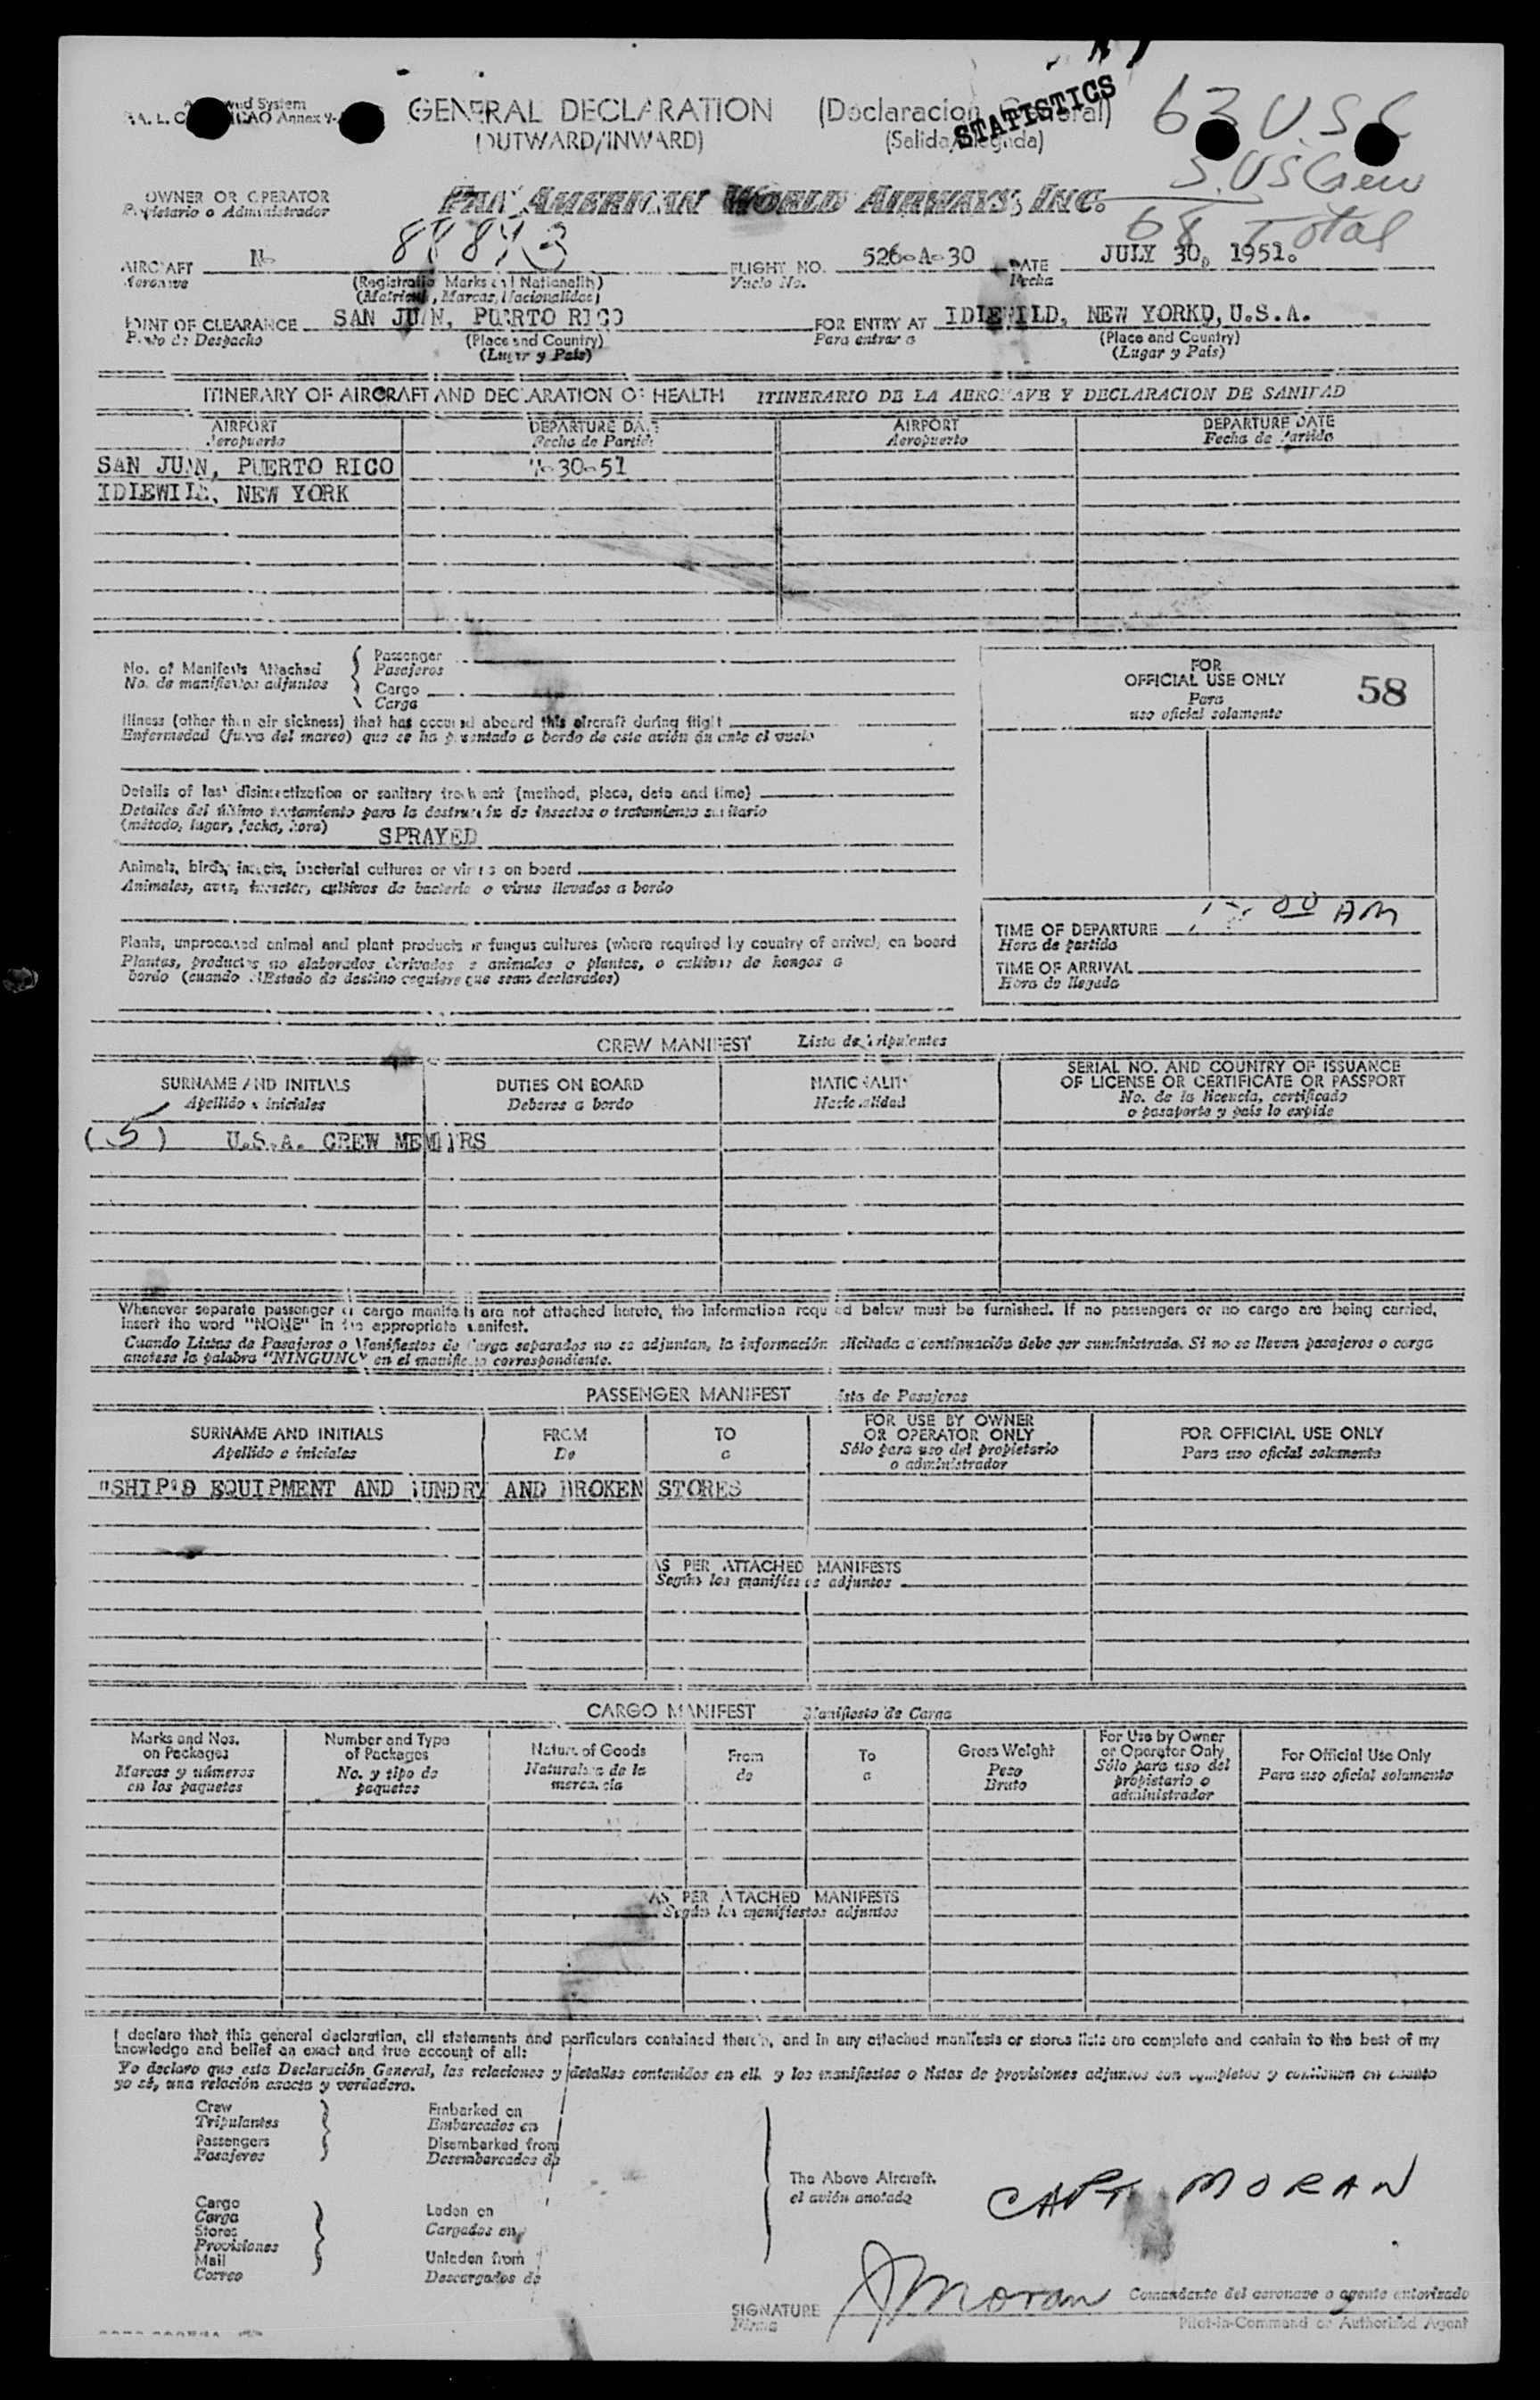 GENERAL DECLARATION (Declaracion General)
(OUTWARD/INWARD) (Salida/Llegada)
STATISTICS
63 U.S.C
5 US Crew
68 Total
OWNER OR OPERATOR
Propietario o Administrador
PAN AMERICAN WORLD AIRWAYS, INC.
AIRCRAFT N- FLIGHT NO. 526-A-30 DATE JULY 30, 1951.
Aeronave (Registration Marks and Nationality) Vuelo No. Fecha
(Matricula, Marcas, Nacionalidad)
POINT OF CLEARANCE SAN JUAN, PUERTO RICO FOR ENTRY AT IDLEWILD, NEW YORKD, U.S.A.
Punto de Despacho (Place and Country) Para entrar a (Place and Country)
(Lugar y Pais) (Lugar y Pais)
ITINERARY OF AIRCRAFT AND DECLARATION OF HEALTH ITINERARIO DE LA AERONAVE Y DECLARACION DE SANIDAD
AIRPORT DEPARTURE DATE AIRPORT DEPARTURE DATE
Aeropuerto Fecha de Partida Aeropuerto Fecha de Partida
SAN JUAN, PUERTO RICO 7-30-51
IDLEWILD, NEW YORK
No. of Manifests Attached
No. de manifiestos adjuntos
Passenger
Pasajeros
Cargo
Carga
FOR
OFFICIAL USE ONLY 58
Para
uso oficial solamente
Illness (other than air sickness) that has occured aboard this aircraft during flight
Enfermedad (fuera del mareo) que se ha presentado a bordo de este avión durante el vuelo
Details of last disinsectization or sanitary treatment (method, place, date and time)
Detalles del último tratamiento para la destrucción de insectos o tratamiento sanitario
(método, lugar, fecha, hora) SPRAYED
Animals, birds, insects, bacterial cultures or virus on board
Animales, aves, insectos, cultivos de bacteria o virus llevados a bordo
Plants, unprocessed animal and plant products or fungus cultures (where required by country of arrival) on board
Plantas, productos no elaborados derivados de animales o plantas, o cultivos de hongos a
bordo (cuando el Estado de destino requiere que sean declarados)
TIME OF DEPARTURE 00 AM
Hora de partida
TIME OF ARRIVAL
Hora de llegada
CREW MANIFEST Lista de Tripulantes
SURNAME AND INITIALS DUTIES ON BOARD NATIONALITY SERIAL NO. AND COUNTRY OF ISSUANCE
OF LICENSE OR CERTIFICATE OR PASSPORT
Apellido e iniciales Deberes a bordo Nacionalidad No. de la licencia, certificado
o pasaporte y pais lo expide
(5) U.S.A. CREW MEMBERS
Whenever separate passenger or cargo manifests are not attached hereto, the information required below must be furnished. If no passengers or no cargo are being carried,
insert the word "NONE" in the appropriate manifest.
Cuando Listas de Pasajeros o Manifiestos de Carga separados no se adjuntan, la información solicitada a continuación debe ser suministrada. Si no se llevan pasajeros o carga
anotese la palabra "NINGUNO" en el manifiesto correspondiente.
PASSENGER MANIFEST Lista de Pasajeros
SURNAME AND INITIALS FROM TO FOR USE BY OWNER
OR OPERATOR ONLY FOR OFFICIAL USE ONLY
Apellido e iniciales De a Sólo para uso del propietario
o administrador Para uso oficial solamente
"SHIP'S EQUIPMENT AND SUNDRY AND BROKEN STORES
AS PER ATTACHED MANIFESTS
Según los manifiestos adjuntos
CARGO MANIFEST Manifiesto de Carga
Marks and Nos.
on Packages
Marcas y números
en los paquetes
Number and Type
of Packages
No. y tipo de
paquetes
Nature of Goods
Naturaleza de la
mercancia
From
de
To
a
Gross Weight
Peso
Bruto
For Use by Owner
or Operator Only
Sólo para uso del
propietario o
administrador
For Official Use Only
Para uso oficial solamente
AS PER ATTACHED MANIFESTS
Según los manifiestos adjuntos
I declare that this general declaration, all statements and particulars contained therein, and in any attached manifests or stores lists are complete and contain to the best of my
knowledge and belief an exact and true account of all:
Yo declaro que esta Declaración General, las relaciones y detalles contenidos en ella y los manifiestos o listas de provisiones adjuntos son completos y contienen en cuanto
yo sé, una relación exacta y verdadera.
Crew
Tripulantes
Passengers
Pasajeros
Embarked on
Embarcados en
Disembarked from
Desembarcados de
Cargo
Carga
Stores
Provisiones
Mail
Correo
Laden on
Cargados en
Unladen from
Descargados de
The Above Aircraft.
el avión anotado
CAPT MORAN
SIGNATURE Moran
Firma
Comandante del aeronave o agente autorizado
Pilot-in-Command or Authorized Agent